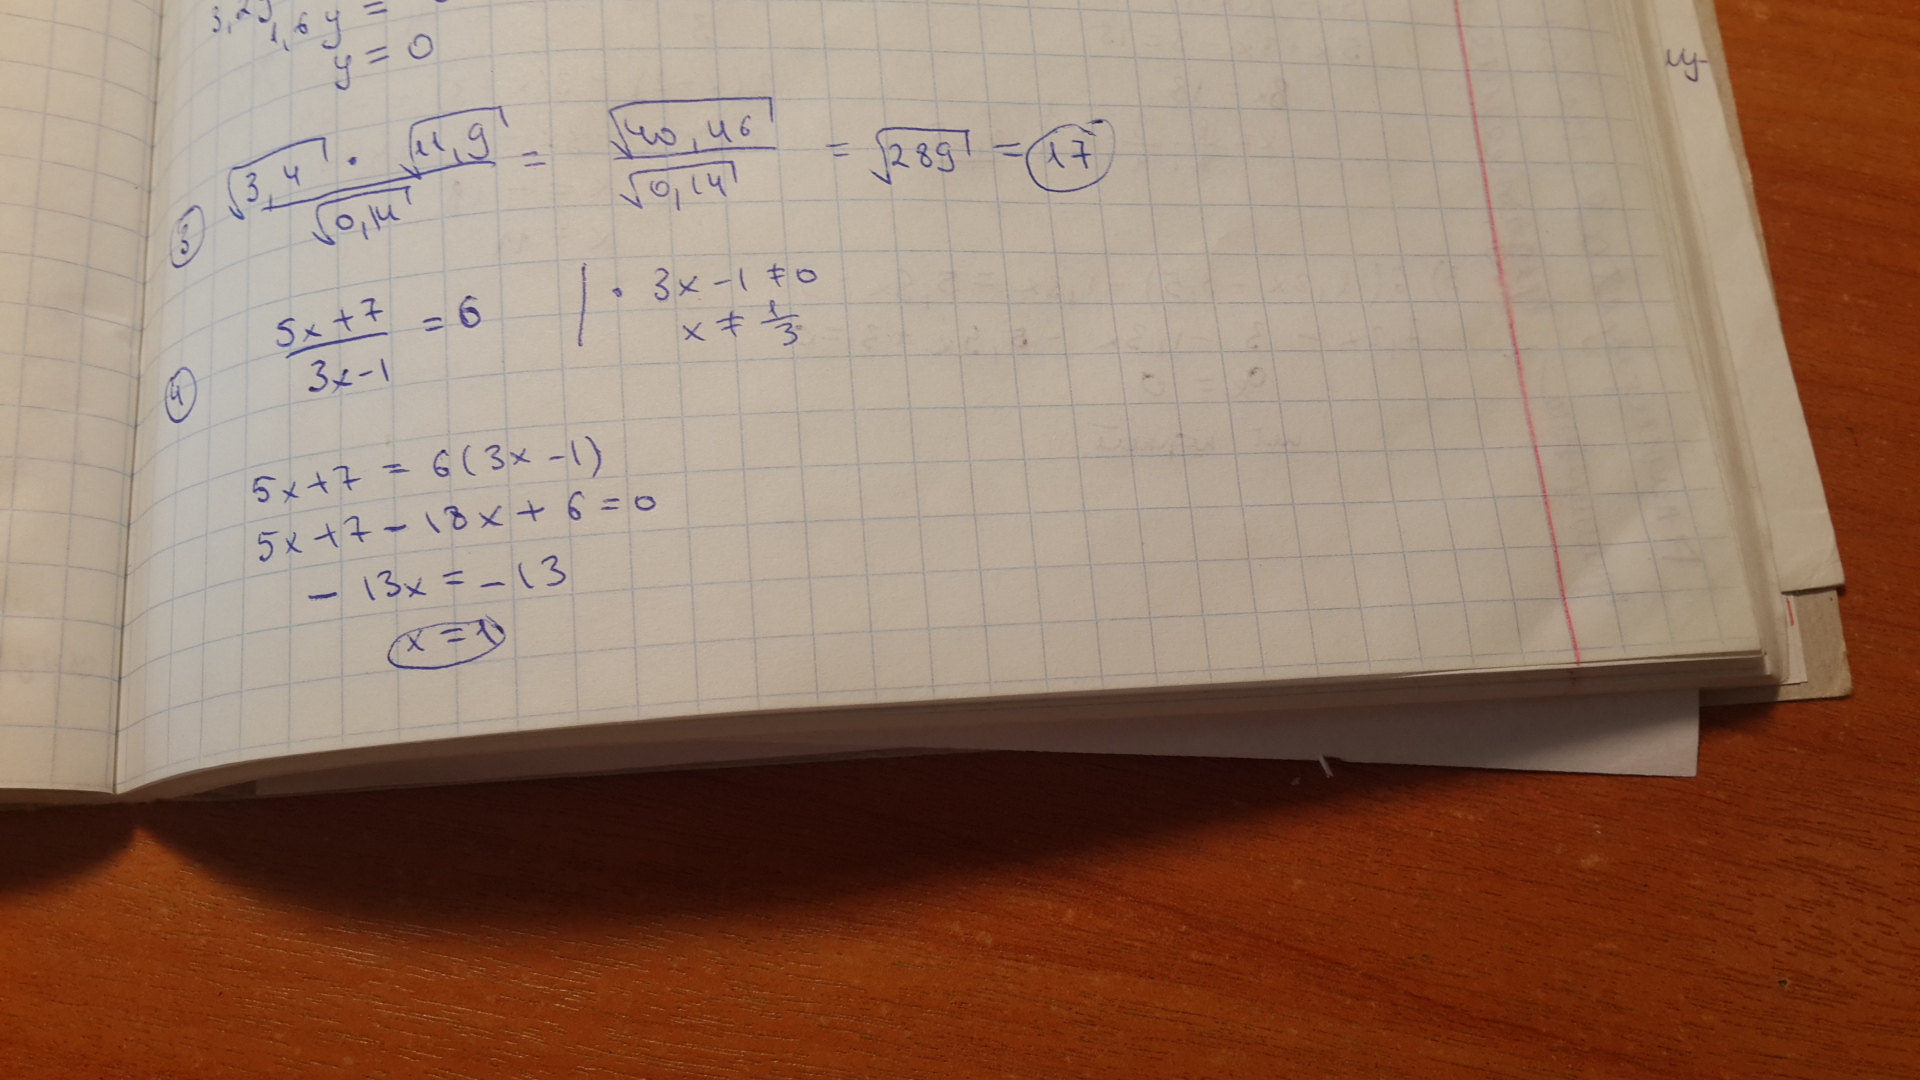 3,2y
1,6y =
y = 0
③ √3,4 · √11,9 / √0,14 = √40,46 / √0,14 = √289 = 17
④ (5x+7)/(3x-1) = 6 | · 3x-1 ≠ 0
x ≠ 1/3
5x+7 = 6(3x-1)
5x+7-18x+6=0
-13x = -13
x = 1